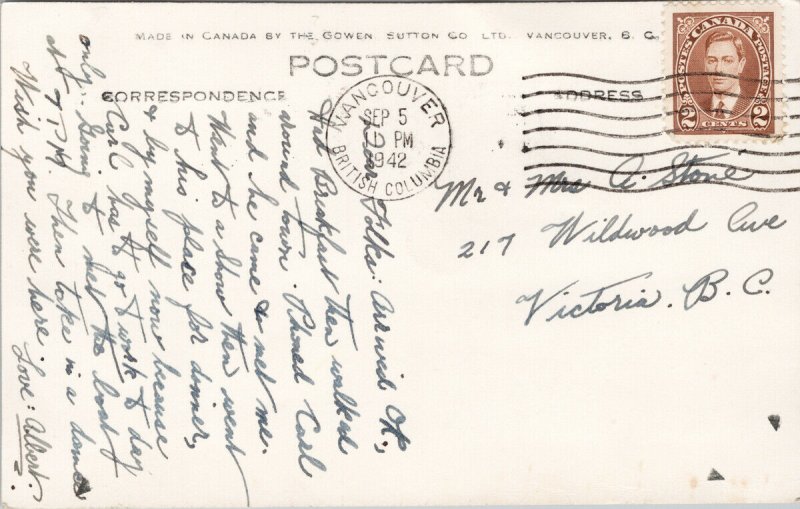 MADE IN CANADA BY THE GOWEN, SUTTON CO. LTD. VANCOUVER, B. C.
POSTCARD
CORRESPONDENCE
ADDRESS
VANCOUVER
SEP 5
PM
1942
BRITISH COLUMBIA
POSTES CANADA POSTAGE
2 CENTS 2
Dear Folks: Arrived OK,
Had Breakfast then walked
around town. Phoned Carl
and he came & met me.
Went to a show then went
to his place for dinner,
& by myself now because
Carl has to go to work to day
only. Going to met the boat
at 7 P.M. Then take in a dance
Wish you were here. Love: Albert.
Mr & Mrs A. Stone
217 Wildwood Ave
Victoria. B. C.